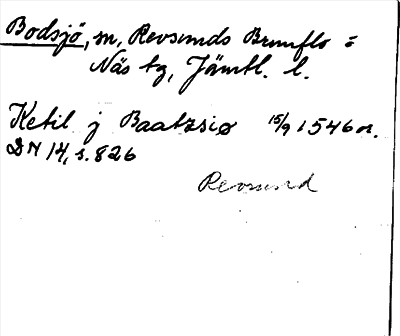 Bodsjö, sn, Revsunds Brunflo o
Näs tg, Jämtl. l.
Ketil j Baatzsiø 15/9 1546 or.
DN 14, s. 826
Revsund